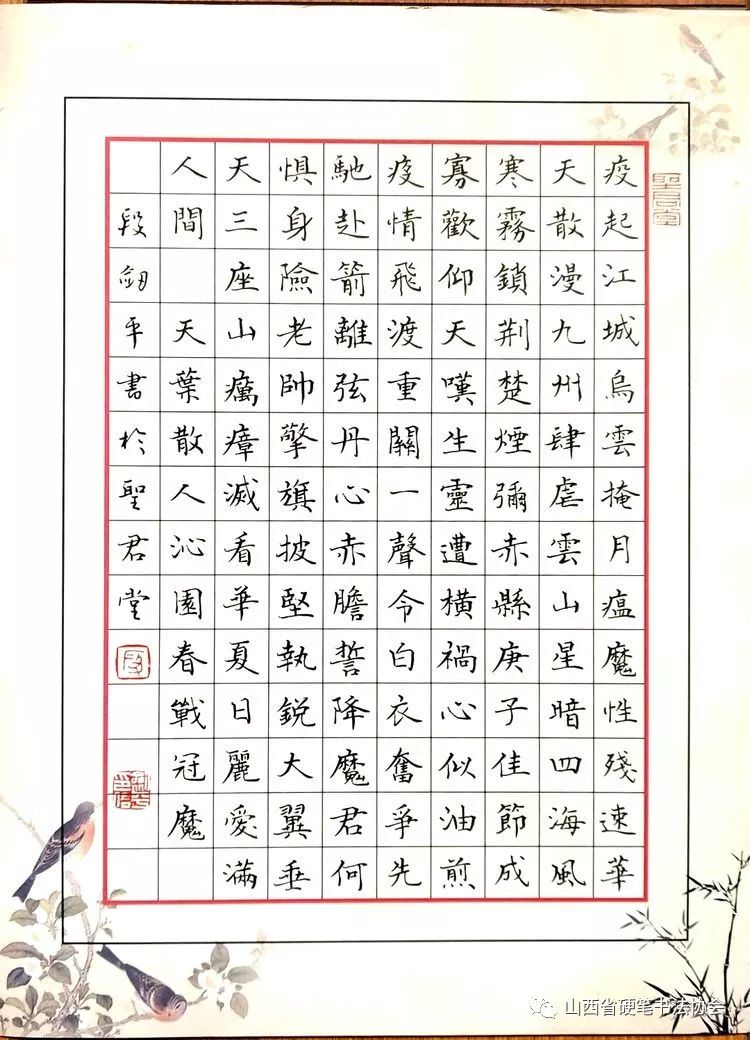 疫起江城烏雲掩月瘟魔性殘速華
天散漫九州肆虐雲山星暗四海風
寒霧鎖荆楚煙彌赤縣庚子佳節成
寡歡仰天嘆生靈遭橫禍心似油煎
疫情飛渡重關一聲令白衣奮爭先
馳赴箭離弦丹心赤膽誓降魔君何
惧身險老帥擎旗披堅執銳大翼垂
天三座山癘瘴滅看華夏日麗愛滿
人間 天葉散人沁園春戰冠魔
段劒平書於聖君堂
聖君堂
山西省硬笔书法协会